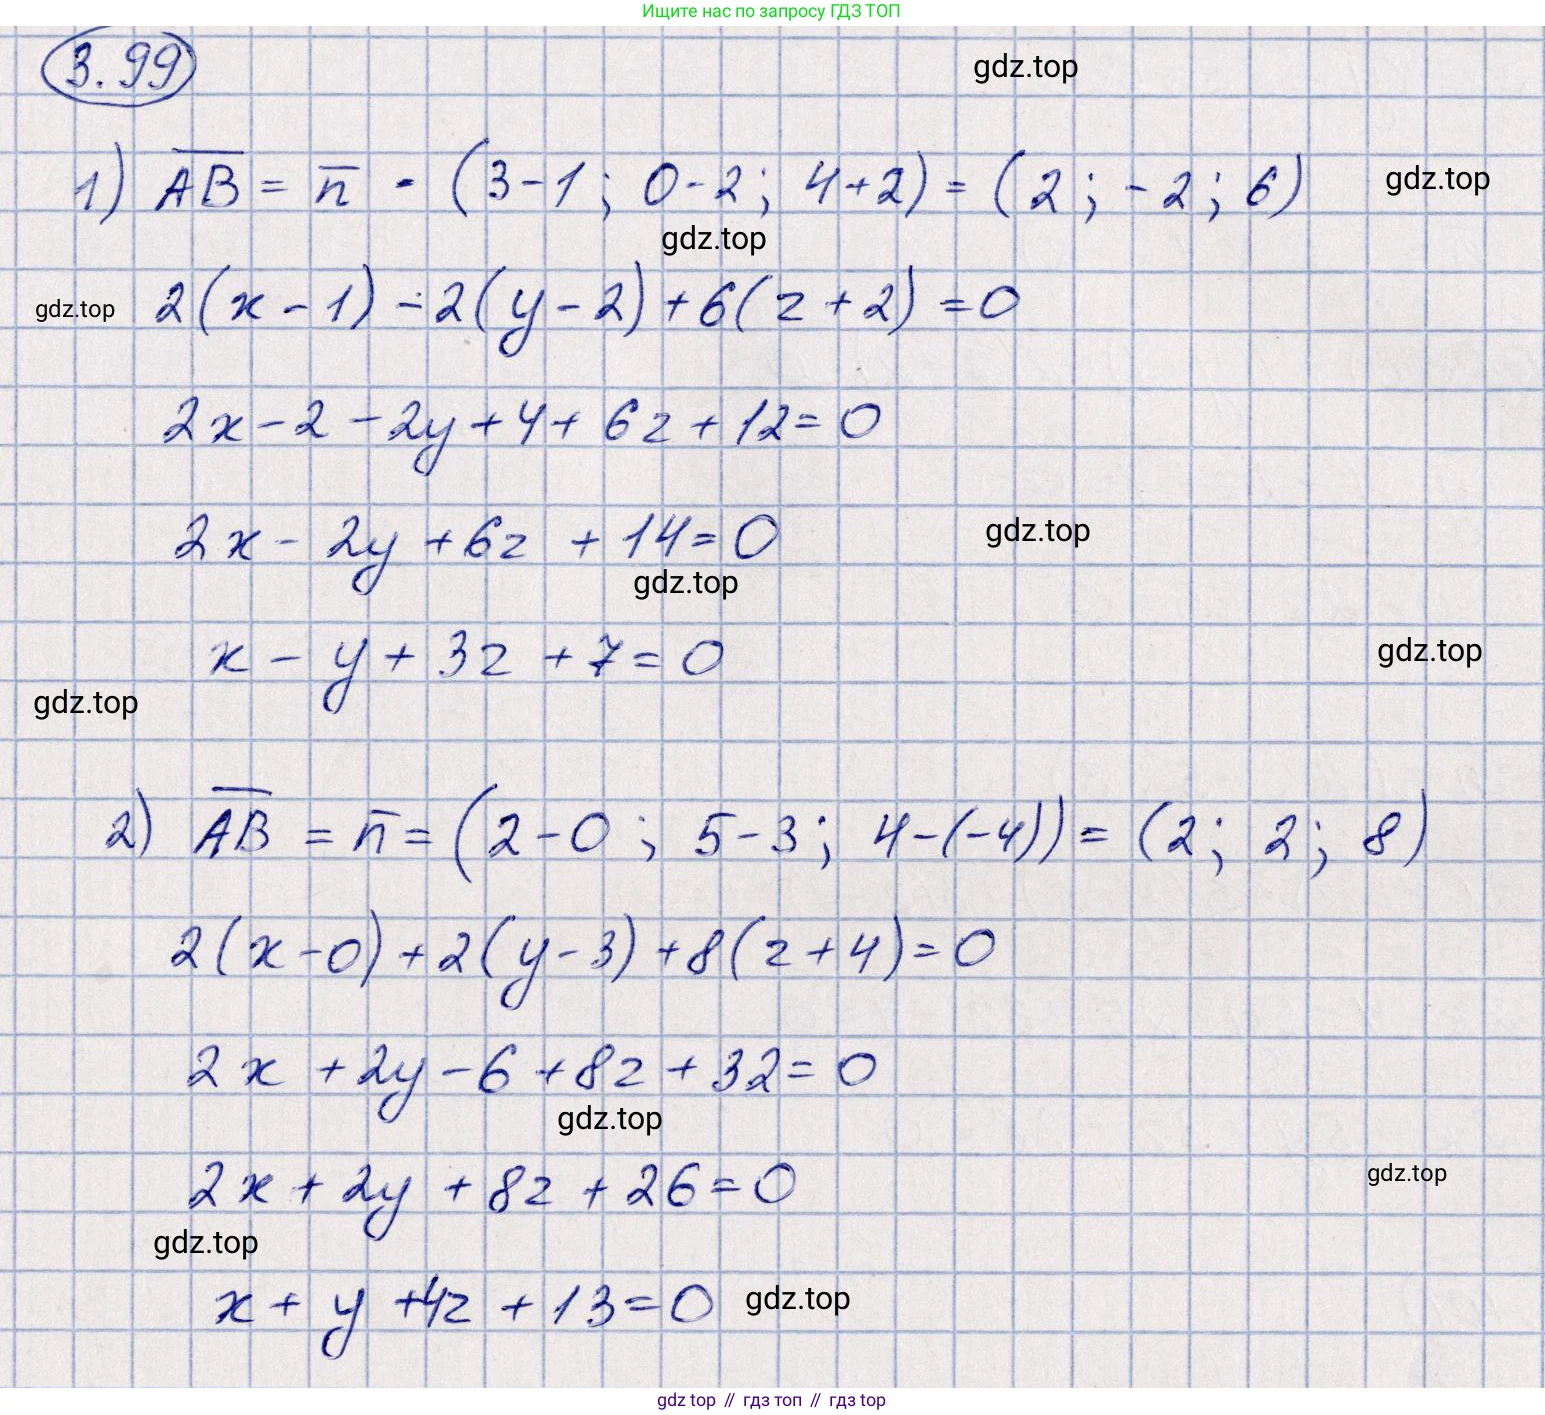 Ищите нас по запросу ГДЗ ТОП
3.99
gdz.top
1) AB = n - (3-1; 0-2; 4+2) = (2; -2; 6)
gdz.top
gdz.top
gdz.top
2(x-1)-2(y-2)+6(z+2)=0
2x-2-2y+4+6z+12=0
2x-2y+6z+14=0
gdz.top
gdz.top
x-y+3z+7=0
gdz.top
gdz.top
2) AB = n = (2-0; 5-3; 4-(-4)) = (2; 2; 8)
2(x-0)+2(y-3)+8(z+4)=0
2x+2y-6+8z+32=0
gdz.top
2x+2y+8z+26=0
gdz.top
gdz.top
x+y+4z+13=0
gdz.top
gdz top // гдз топ // гдз top